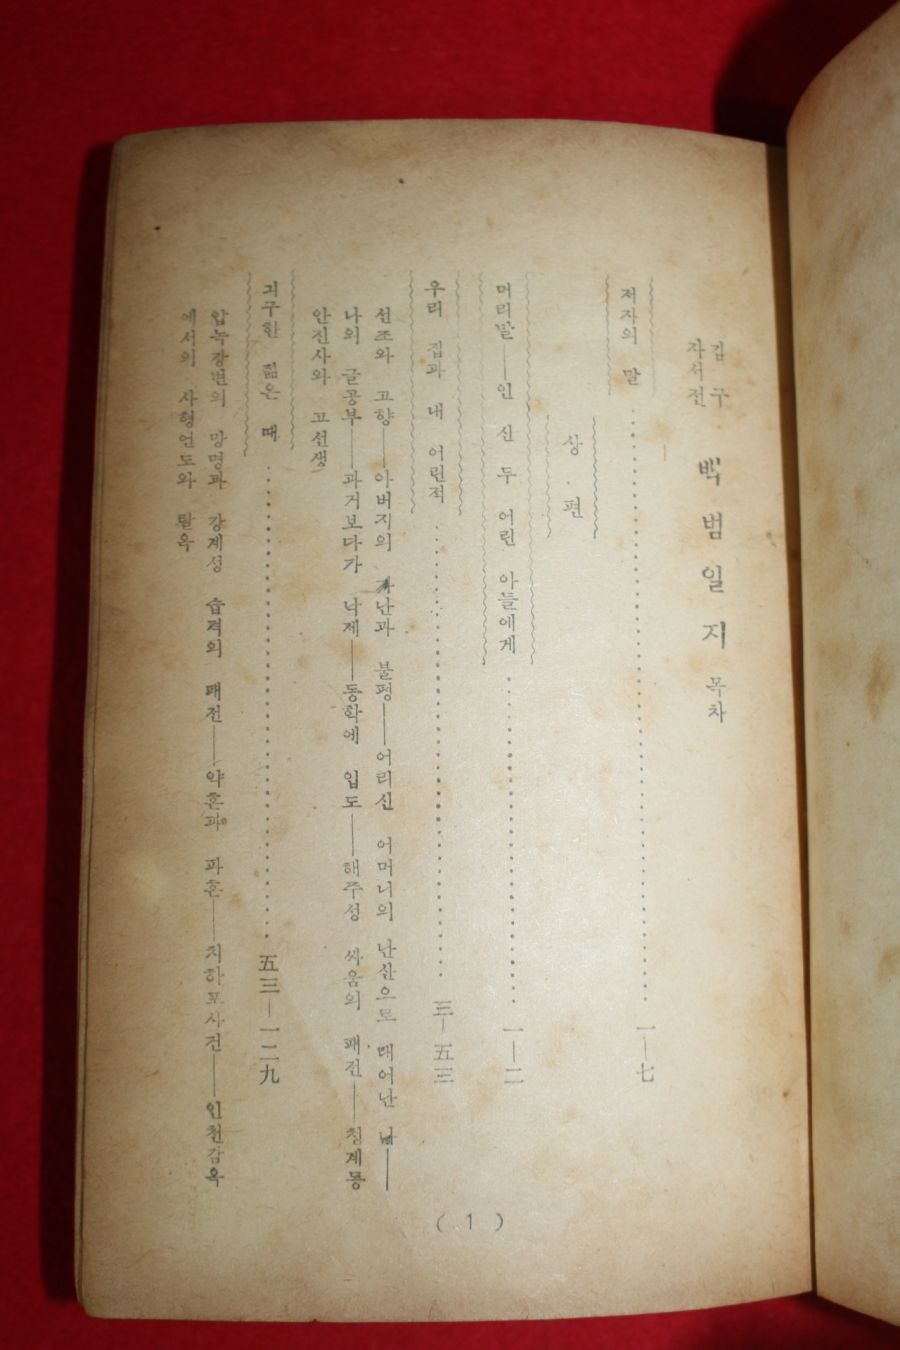 김구
자서전
백범일지 목차
저자의 말 ………… 一—七
상편
머리말——인 신 두 어린 아들에게 ………… 一—二
우리 집과 내 어린적 ………… 三—五三
선조와 고향——아버지의 가난과 불평——어리신 어머니의 난산으로 태어난 나——
나의 글공부——과거보다가 낙제——동학에 입도——해주성 싸움의 패전——청계동
안진사와 고선생
기구한 젊은 때 ………… 五三—一二九
압녹강변의 망명과 강계성 습격의 패전——약혼과 파혼——치하포사건——인천감옥
에서의 사형언도와 탈옥
( 1 )